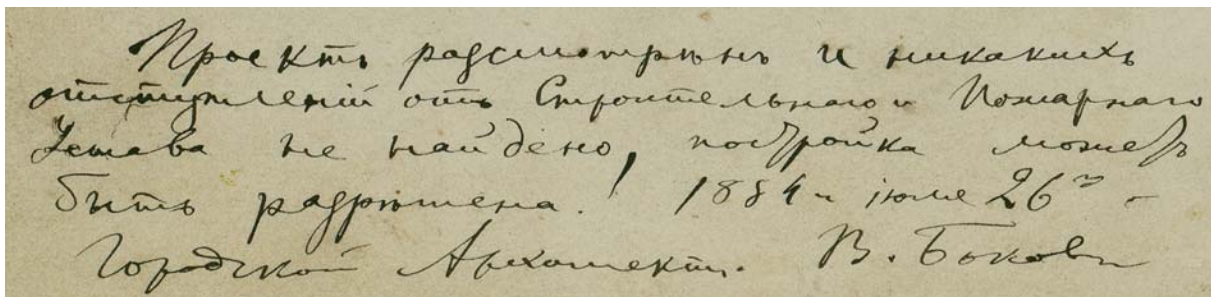 Проектъ разсмотрѣнъ и никакихъ
отступленій отъ Строительнаго и Пожарнаго
Устава не найдено, постройка можетъ
быть разрѣшена. 1884 г. іюля 26
Городской Архитекторъ. В. Боковъ